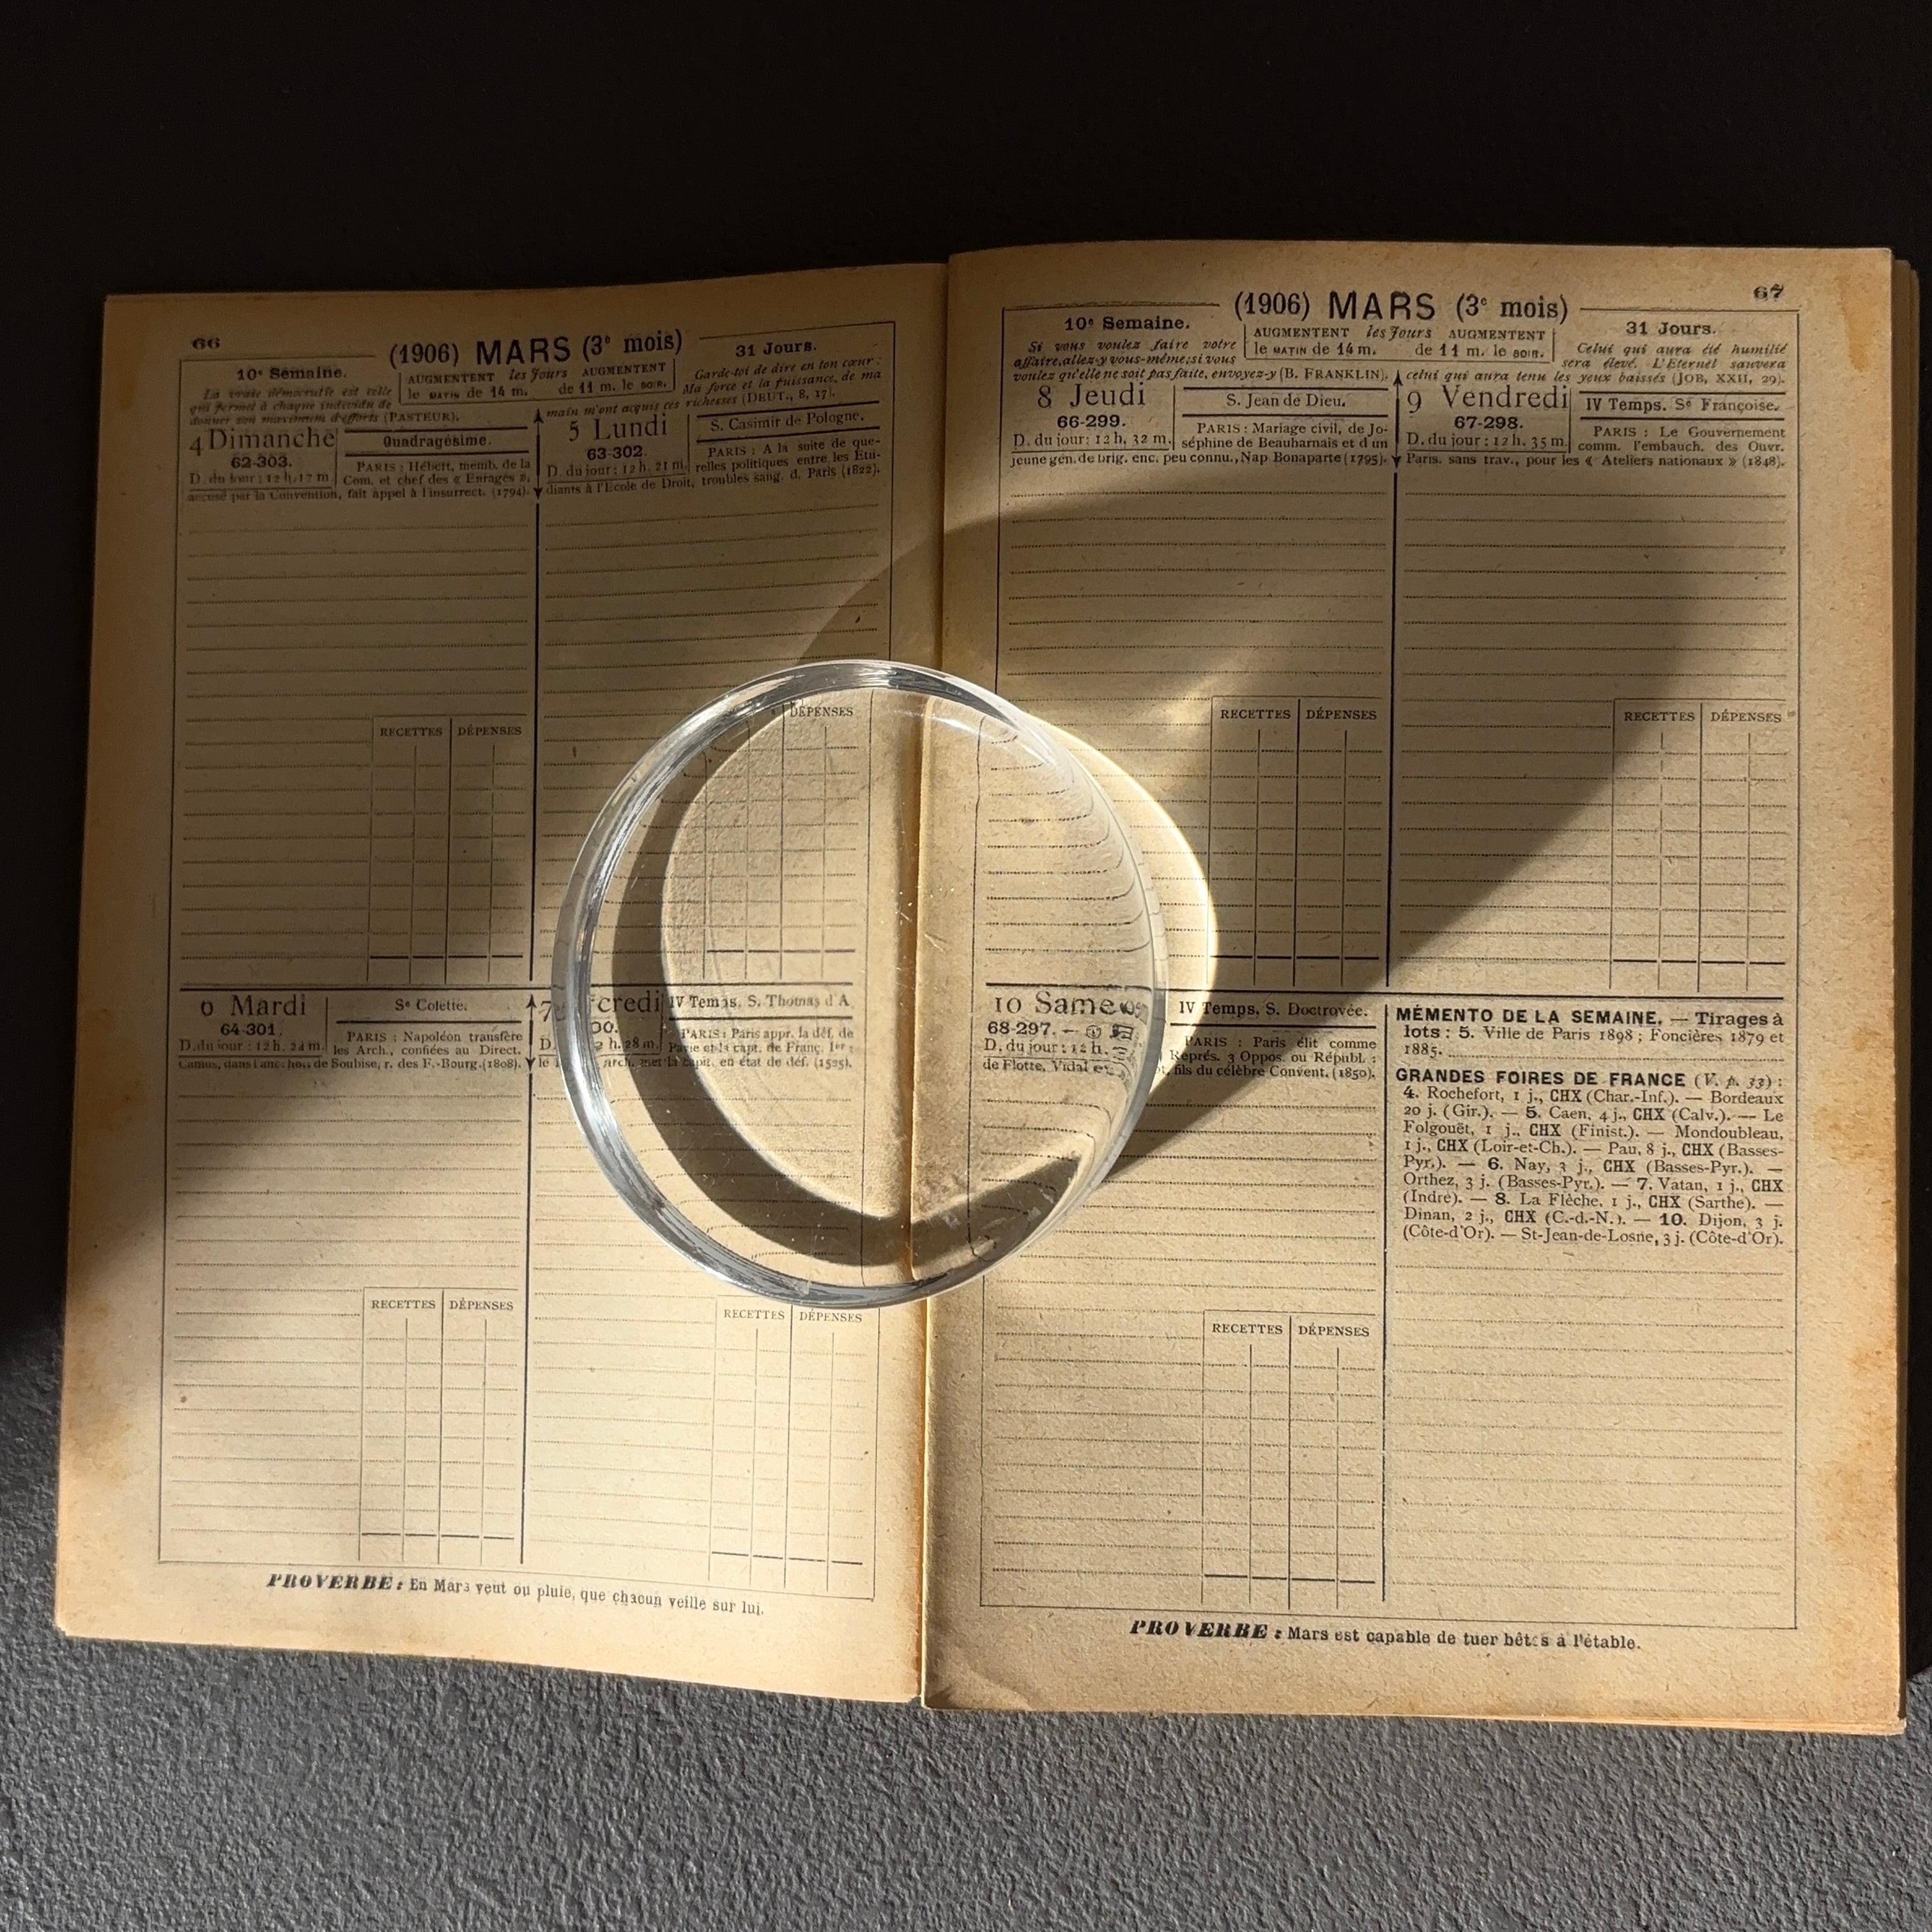 66
(1906) MARS (3e mois)
10e Semaine.
31 Jours.
AUGMENTENT les Jours AUGMENTENT
le MATIN de 14 m. de 11 m. le SOIR.
La vraie démocratie est celle
qui permet à chaque individu de
donner son maximum d'efforts (PASTEUR).
Garde-toi de dire en ton cœur :
Ma force et la puissance de ma
main m'ont acquis ces richesses (DEUT., 8, 17).
4 Dimanche
62-303.
D. du jour : 12 h. 17 m.
Quadragésime.
PARIS : Hébert, memb. de la
Com. et chef des « Enragés »,
accusé par la Convention, fait appel à l'insurrect. (1794).
5 Lundi
63-302.
D. du jour : 12 h. 21 m.
S. Casimir de Pologne.
PARIS : A la suite de que-
relles politiques entre les Étu-
diants à l'Ecole de Droit, troubles sang. d. Paris (1822).
RECETTES DÉPENSES
DÉPENSES
Mardi
64-301.
D. du jour : 12 h. 24 m.
Se Colette.
PARIS : Napoléon transfère
les Arch., confiées au Direct.
Camus, dans l'anc. hôt. de Soubise, r. des F.-Bourg. (1808).
7 credi
00.
D. 2 h. 28 m.
IV Temps. S. Thomas d'A.
PARIS : Paris appr. la déf. de
Pavie et la capt. de Franç. Ier :
le arch. met la capit. en état de déf. (1525).
RECETTES DÉPENSES
RECETTES DÉPENSES
PROVERBE : En Mars vent ou pluie, que chacun veille sur lui.
67
(1906) MARS (3e mois)
10e Semaine.
31 Jours.
AUGMENTENT les Jours AUGMENTENT
le MATIN de 14 m. de 11 m. le SOIR.
Si vous voulez faire votre
affaire, allez-y vous-même; si vous
voulez qu'elle ne soit pas faite, envoyez-y (B. FRANKLIN).
Celui qui aura été humilié
sera élevé. L'Eternel sauvera
celui qui aura tenu les yeux baissés (JOB, XXII, 29).
8 Jeudi
66-299.
D. du jour : 12 h. 32 m.
S. Jean de Dieu.
PARIS : Mariage civil, de Jo-
séphine de Beauharnais et d'un
jeune gén. de brig. enc. peu connu., Nap Bonaparte (1795).
9 Vendredi
67-298.
D. du jour : 12 h. 35 m.
IV Temps. Se Françoise.
PARIS : Le Gouvernement
comm. l'embauch. des Ouvr.
Paris. sans trav., pour les « Ateliers nationaux » (1848).
RECETTES DÉPENSES
RECETTES DÉPENSES
10 Same
68-297. –
D. du jour : 12 h.
IV Temps, S. Doctrovée.
PARIS : Paris élit comme
Représ. 3 Oppos. ou Républ. :
de Flotte, Vidal et fils du célèbre Convent. (1850).
RECETTES DÉPENSES
MÉMENTO DE LA SEMAINE. — Tirages à
lots : 5. Ville de Paris 1898 ; Foncières 1879 et
1885.
GRANDES FOIRES DE FRANCE (V. p. 33) :
4. Rochefort, 1 j., CHX (Char.-Inf.). — Bordeaux
20 j. (Gir.). — 5. Caen, 4 j., CHX (Calv.). — Le
Folgouët, 1 j., CHX (Finist.). — Mondoubleau,
1 j., CHX (Loir-et-Ch.). — Pau, 8 j., CHX (Basses-
Pyr.). — 6. Nay, 3 j., CHX (Basses-Pyr.). —
Orthez, 3 j. (Basses-Pyr.). — 7. Vatan, 1 j., CHX
(Indre). — 8. La Flèche, 1 j., CHX (Sarthe). —
Dinan, 2 j., CHX (C.-d.-N.). — 10. Dijon, 3 j.
(Côte-d'Or). — St-Jean-de-Losne, 3 j. (Côte-d'Or).
PROVERBE : Mars est capable de tuer bêtes à l'étable.